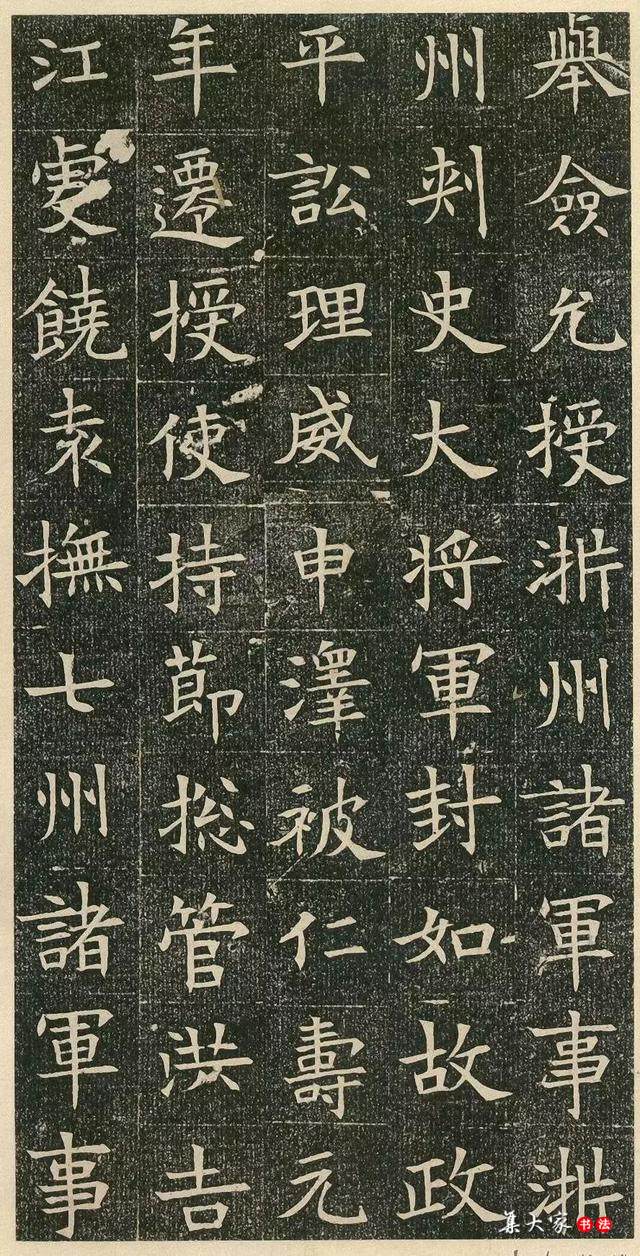 舉僉允授淅州諸軍事淅
州刺史大將軍封如故政
平訟理威申澤被仁壽元
年遷授使持節揔管洪吉
江虔饒袁撫七州諸軍事
集大家 书法